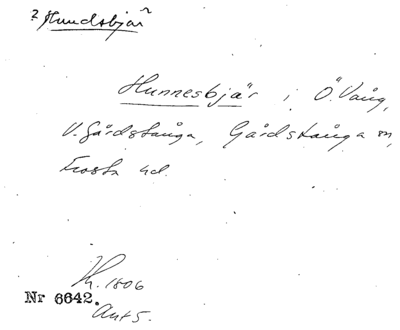 ? Hundsbjär
Hunnesbjär i Ö. Vång,
V. Gårdstånga, Gårdstånga sn,
Frosta hd.
1806
Nr 6642.
Ant 5.